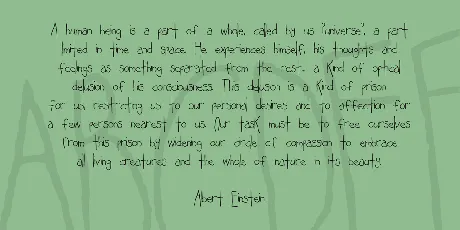 A human being is a part of a whole, called by us "universe", a part
limited in time and space. He experiences himself, his thoughts and
feelings as something separated from the rest... a kind of optical
delusion of his consciousness. This delusion is a kind of prison
for us, restricting us to our personal desires and to affection for
a few persons nearest to us. Our task must be to free ourselves
from this prison by widening our circle of compassion to embrace
all living creatures and the whole of nature in its beauty.
Albert Einstein